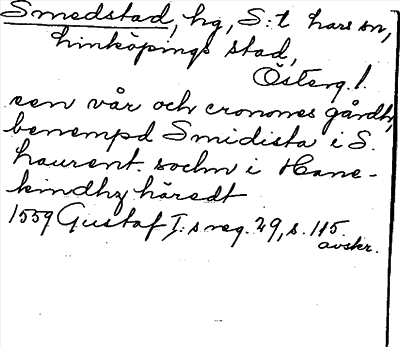 Smedstad, hg, S:t Lars sn,
Linköpings stad,
Österg. l.
een vår och cronones gårdh,
benempd Smidista i S.
Laurent. sochn i Hane-
kindhz häredt
1559 Gustaf I:s reg. 29, s. 115.
avskr.